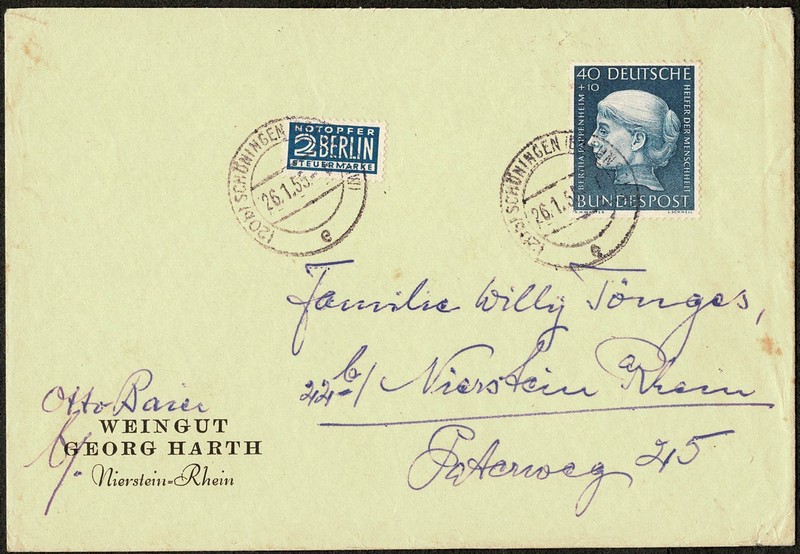 NOTOPFER
2 BERLIN
STEUERMARKE
(20b) SCHÖNINGEN
26.1.55.
e
40 DEUTSCHE
+10
BERTHA PAPPENHEIM
HELFER DER MENSCHHEIT
BUNDESPOST
(20b) SCHÖNINGEN
26.1.5
e
Familie Willy Tönges,
22b/ Nierstein a Rhein
Paterweg 25
Otto Baier
b/.
WEINGUT
GEORG HARTH
Nierstein-Rhein